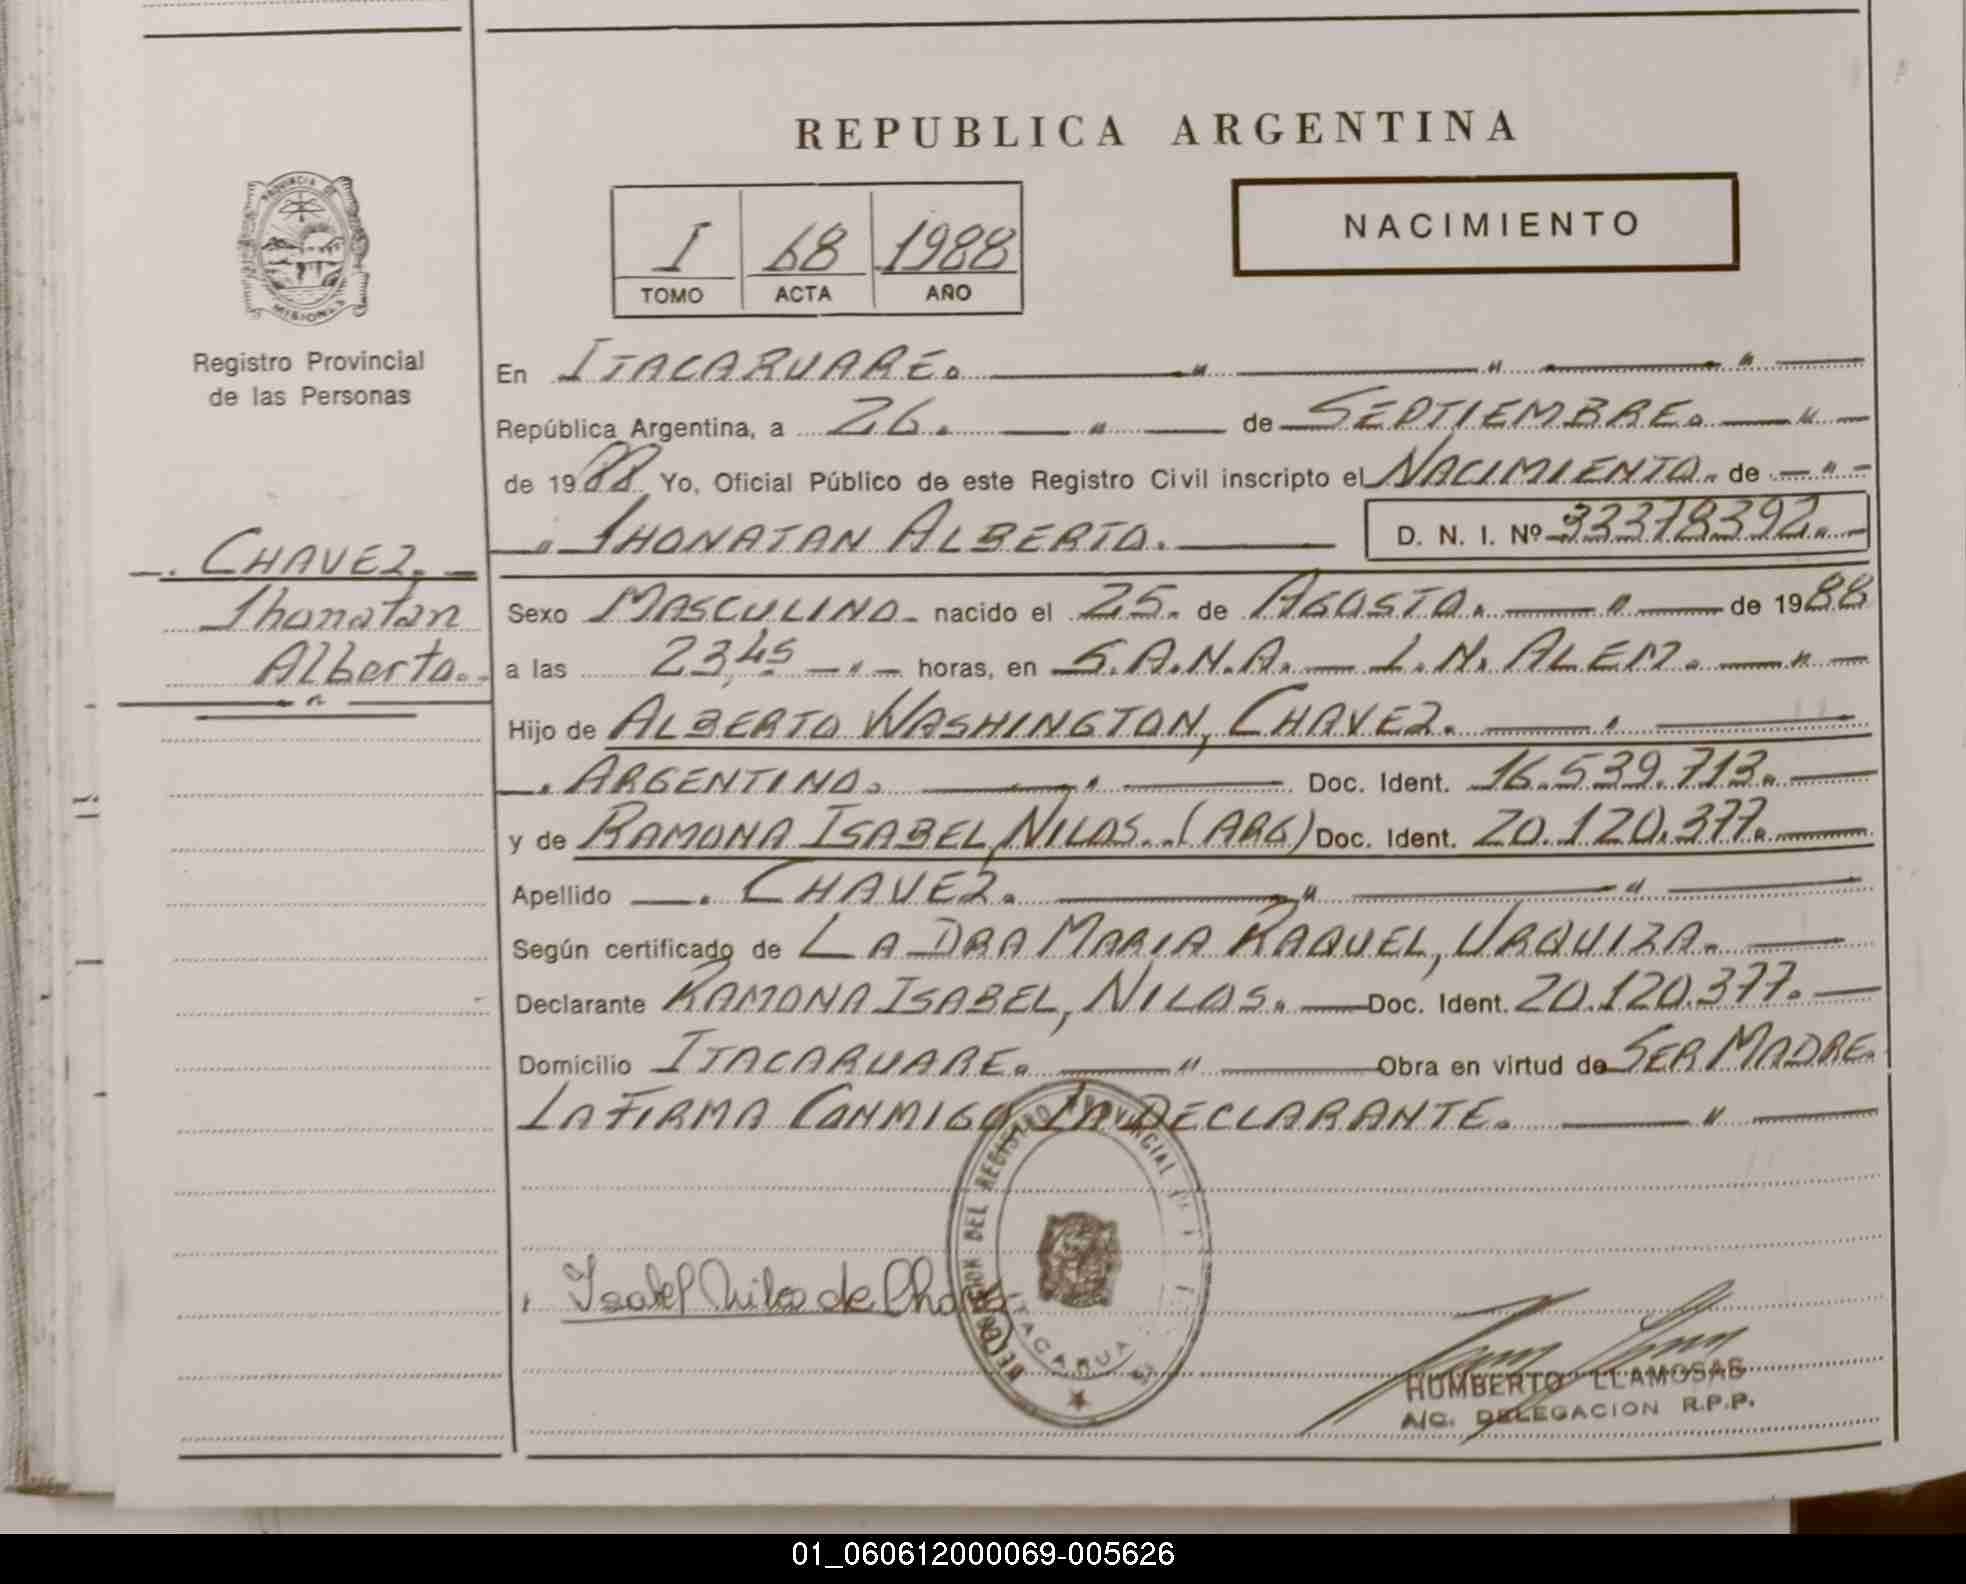 REPUBLICA ARGENTINA
PROVINCIA DE MISIONES
Registro Provincial
de las Personas
I 68 1988
TOMO ACTA AÑO
NACIMIENTO
En ITACARUARE.
República Argentina, a 26. de SEPTIEMBRE.
de 1988 Yo, Oficial Público de este Registro Civil inscripto el NACIMIENTO. de
JHONATAN ALBERTO. D. N. I. Nº 33378392.
CHAVEZ.
Jhonatan
Alberto.
Sexo MASCULINO. nacido el 25. de AGOSTO. de 1988
a las 23,45 horas, en S.A.N.A. L.N. ALEM.
Hijo de ALBERTO WASHINGTON, CHAVEZ.
ARGENTINO. Doc. Ident. 16.539.713.
y de RAMONA ISABEL, NILOS. (ARG) Doc. Ident. 20.120.377.
Apellido CHAVEZ.
Según certificado de LA DRA MARIA RAQUEL, URQUIZA.
Declarante RAMONA ISABEL, NILOS. Doc. Ident. 20.120.377.
Domicilio ITACARUARE. Obra en virtud de SER MADRE.
LA FIRMA CONMIGO LA DECLARANTE.
DELEGACION DEL REGISTRO PROVINCIAL
Isabel Nilos de Chavez
HUMBERTO LLAMOSAS
A/C. DELEGACION R.P.P.
01_060612000069-005626